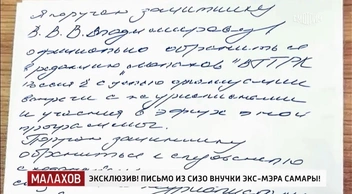 Я поручаю защитнику
В.В.В. Владимировичу
официально обратиться в
редакцию Малахов "ВГТРК
Россия 1" с целью организации
встречи с журналистами
и участия в эфире этой
программы.
Поручаю защитнику
обратиться к следователю
МАЛАХОВ
ЭКСКЛЮЗИВ! ПИСЬМО ИЗ СИЗО ВНУЧКИ ЭКС-МЭРА САМАРЫ!